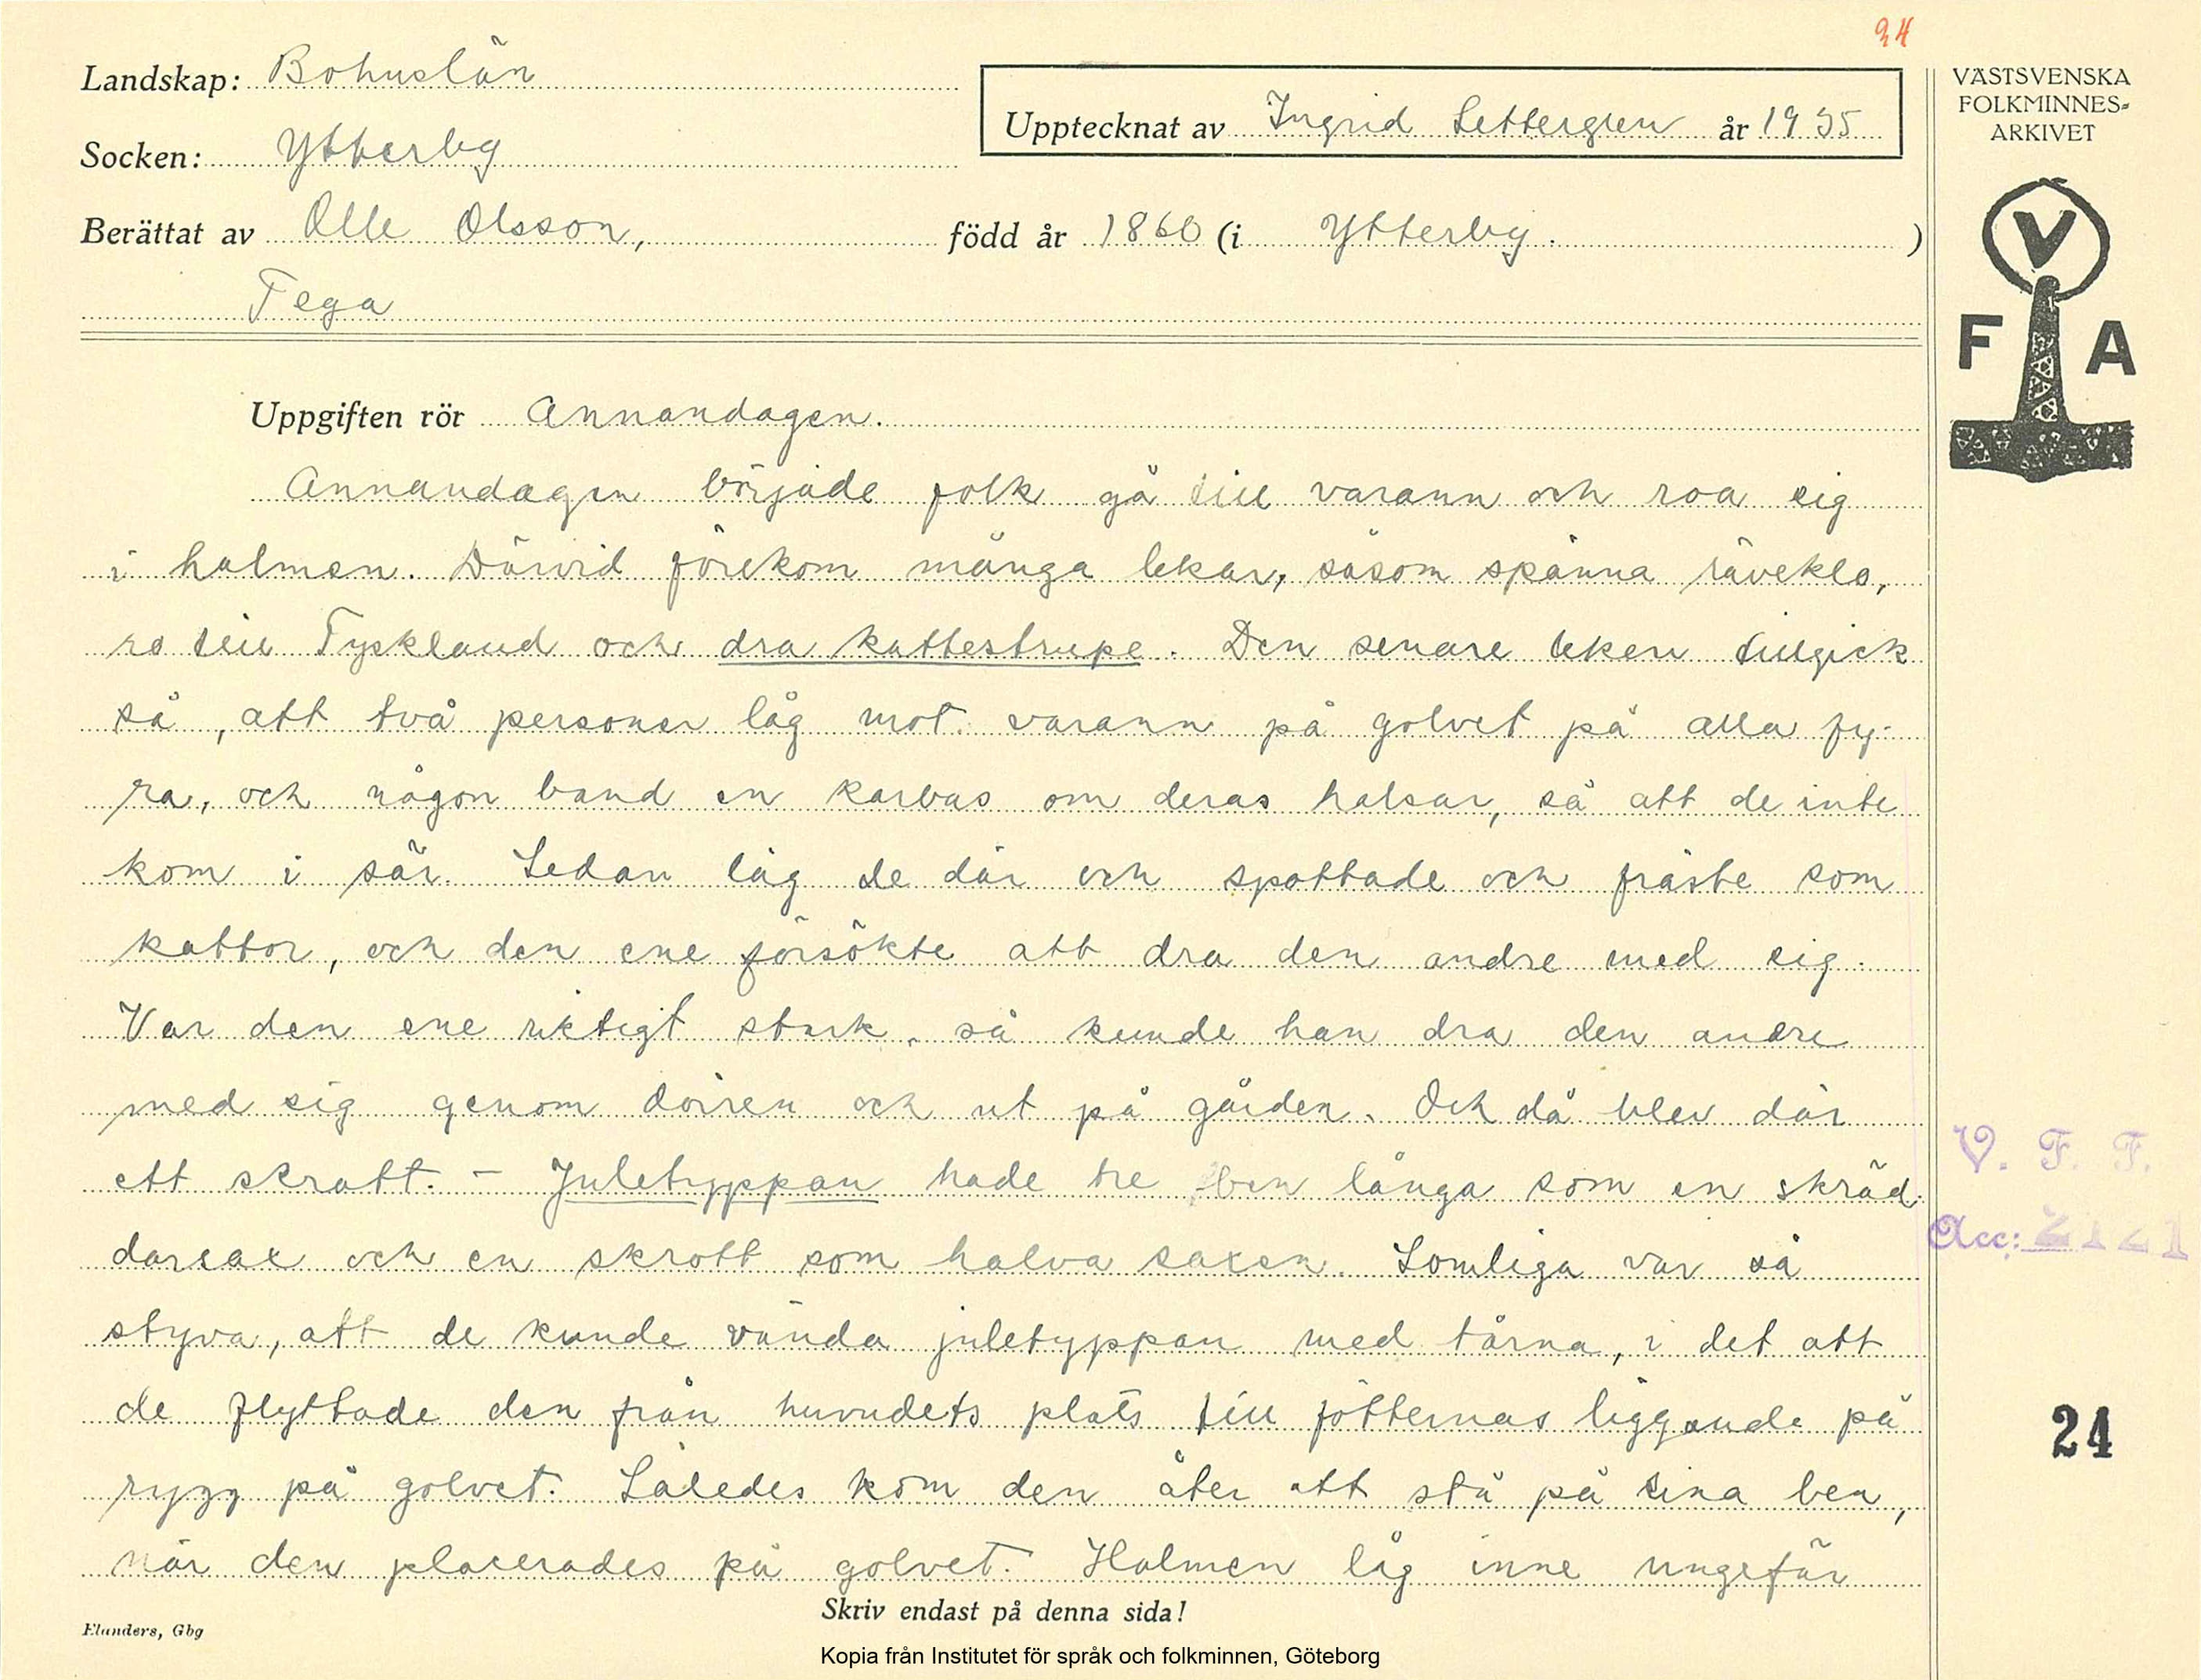 24
Landskap: Bohuslän
Socken: Ytterby
Upptecknat av Ingrid Settergren år 1935
Berättat av Olle Olsson, född år 1860 (i Ytterby. )
Tega
VÄSTSVENSKA
FOLKMINNES-
ARKIVET
V
F A
Uppgiften rör Annandagen.
Annandagen började folk gå till varann och roa sig
i halmen. Därvid förekom många lekar, såsom spänna räveklo,
ro till Tyskland och dra kattestrupe. Den senare leken tillgick
så, att två personer låg mot varann på golvet på alla fy-
ra, och någon band en karbas om deras halsar, så att de inte
kom i sär. Sedan låg de där och spottade och fräste som
kattor, och den ene försökte att dra den andre med sig.
Var den ene riktigt stark, så kunde han dra den andre
med sig genom dörren och ut på gården. Och då blev där
ett skratt. - Juletyppan hade tre ben långa som en skräd-
darsax och en skrott som halva saxen. Somliga var så
styva, att de kunde vända juletyppan med tårna, i det att
de flyttade den från huvudets plats till fötternas liggande på
rygg på golvet. Således kom den åter att stå på sina ben,
när den placerades på golvet. Halmen låg inne ungefär
V. F. F.
Acc: 2121
24
Skriv endast på denna sida!
Elanders, Gbg
Kopia från Institutet för språk och folkminnen, Göteborg